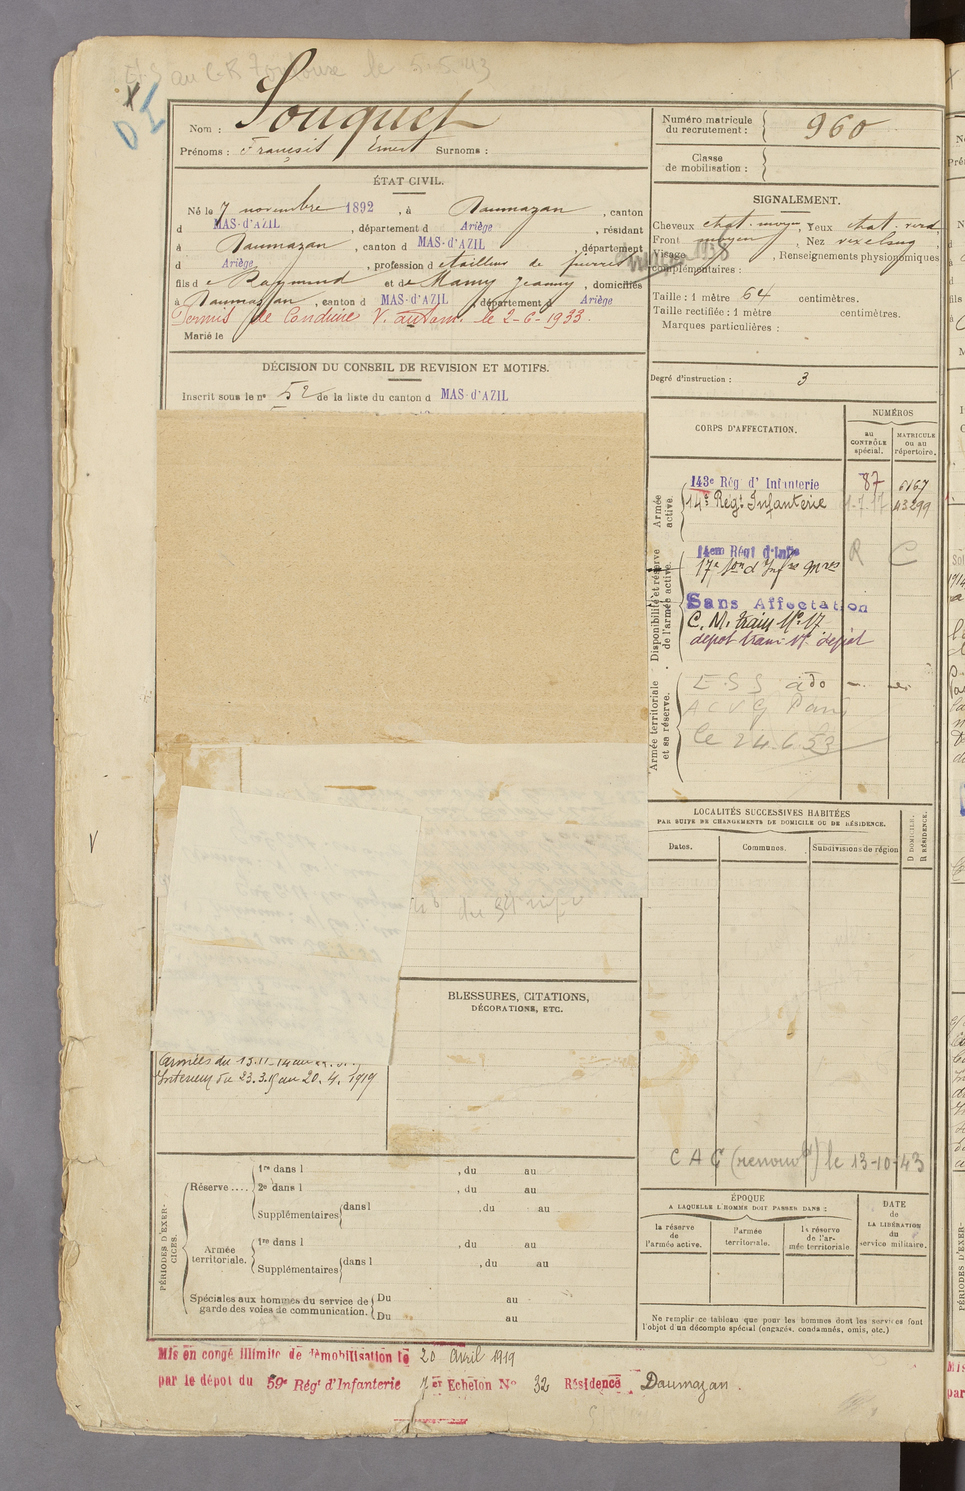 au C.R Toulouse le 5.5.43
Nom : Souquet
Prénoms : François Ernest Surnoms :
ÉTAT CIVIL.
Né le 7 novembre 1892, à Daumazan, canton
d MAS-d'AZIL, département d Ariège, résidant
à Daumazan, canton d MAS-d'AZIL, département
d Ariège, profession d tailleur de pierres
fils d e Raymond et de Mamy Jeanny, domiciliés
à Daumazan, canton d MAS-d'AZIL, département d Ariège
Permis de Conduire V. autom. le 2-6-1933.
Marié le
DÉCISION DU CONSEIL DE REVISION ET MOTIFS.
Inscrit sous le n° 52 de la liste du canton d MAS-d'AZIL
Numéro matricule du recrutement : 960
Classe de mobilisation :
SIGNALEMENT.
Cheveux chat. moyen, Yeux chat. verd
Front moyen, Nez
Visage, Renseignements physionomiques
complémentaires :
Taille : 1 mètre 64 centimètres.
Taille rectifiée : 1 mètre centimètres.
Marques particulières :
Degré d'instruction : 3
CORPS D'AFFECTATION.
NUMÉROS
au CONTRÔLE spécial.
MATRICULE ou au répertoire.
Armée active.
143e Rég d'Infanterie 87 6167
14e Régt Infanterie 43299
Disponibilité et réserve de l'armée active.
14em Régt d'Infie R C
17e Son d'Infre Mres
Sans Affectation
C. M. train No 17
depot train 17 depot
Armée territoriale et sa réserve.
E S S
A C V G Paris
le 24.6.53
LOCALITÉS SUCCESSIVES HABITÉES
PAR SUITE DE CHANGEMENTS DE DOMICILE OU DE RÉSIDENCE.
Dates.
Communes.
Subdivisions de région
D DOMICILE.
R RÉSIDENCE.
V
BLESSURES, CITATIONS,
DÉCORATIONS, ETC.
Armées du 13.11.14 au
Intérieur du 23.3.19 au 20.4.1919
C A G (renouvt) le 13-10-43
PÉRIODES D'EXERCICES.
Réserve....
1re dans l, du au
2e dans l, du au
Supplémentaires dans l, du au
Armée territoriale.
1re dans l, du au
Supplémentaires dans l, du au
Spéciales aux hommes du service de garde des voies de communication.
Du au
Du au
ÉPOQUE
A LAQUELLE L'HOMME DOIT PASSER DANS :
la réserve de l'armée active.
l'armée territoriale.
la réserve de l'armée territoriale
DATE de LA LIBÉRATION du service militaire.
Ne remplir ce tableau que pour les hommes dont les services font
l'objet d'un décompte spécial (engagés, condamnés, omis, etc.)
Mis en congé illimité de démobilisation le 20 avril 1919
par le dépôt du 59e Régt d'Infanterie 7 er Echelon No 32 Résidence Daumazan.